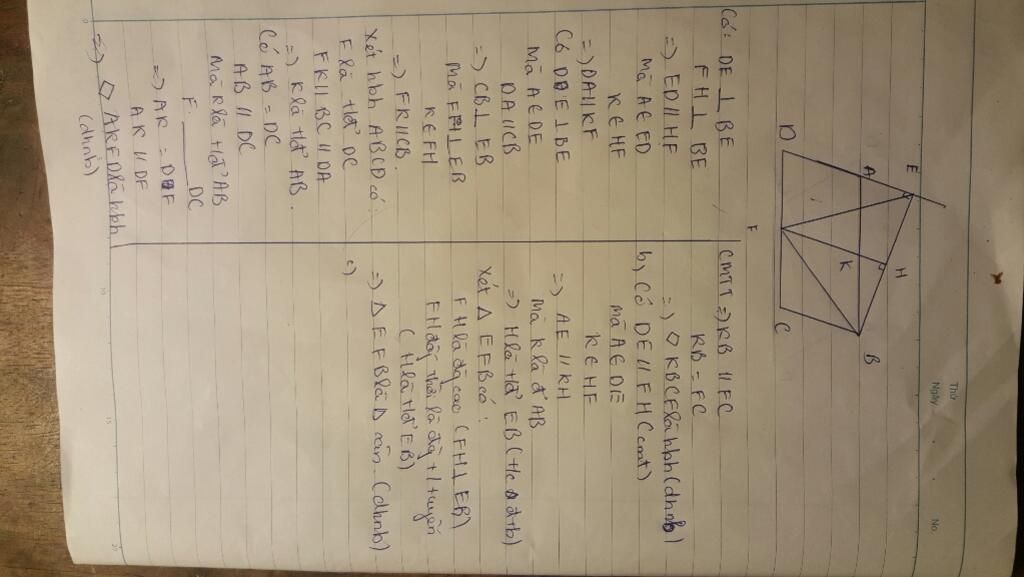 Thứ
Ngày
No.
E
A
H
D
K
B
F
C
Có: DE ⊥ BE
FH ⊥ BE
=> ED // HF
Mà A ∈ ED
K ∈ HF
=> DA // KF
Có DE ⊥ BE
Mà A ∈ DE
DA // CB
=> CB ⊥ EB
Mà FH ⊥ EB
K ∈ FH
=> FK // CB.
Xét hbh ABCD có:
F là tđ' DC
FK // BC // DA
=> K là tđ' AB.
Có AB = DC
AB // DC
Mà K là tđ' AB
F. ____ DC
=> AK = DF
AK // DF
=> ◇ AKFD là hbh
(dhnb)
CMTT => KB // FC
KB = FC
=> ◇ KBCF là hbh (dhnb)
b, Có DE // FH (cmt)
Mà A ∈ DE
K ∈ HF
=> AE // KH
Mà K là tđ' AB
=> H là tđ' EB (t/c đtb)
Xét Δ EFB có:
FH là đg cao (FH ⊥ EB)
FH đồng thời là đg t/tuyến
( H là tđ' EB)
=> Δ EFB là Δ cân (dhnb)
c)